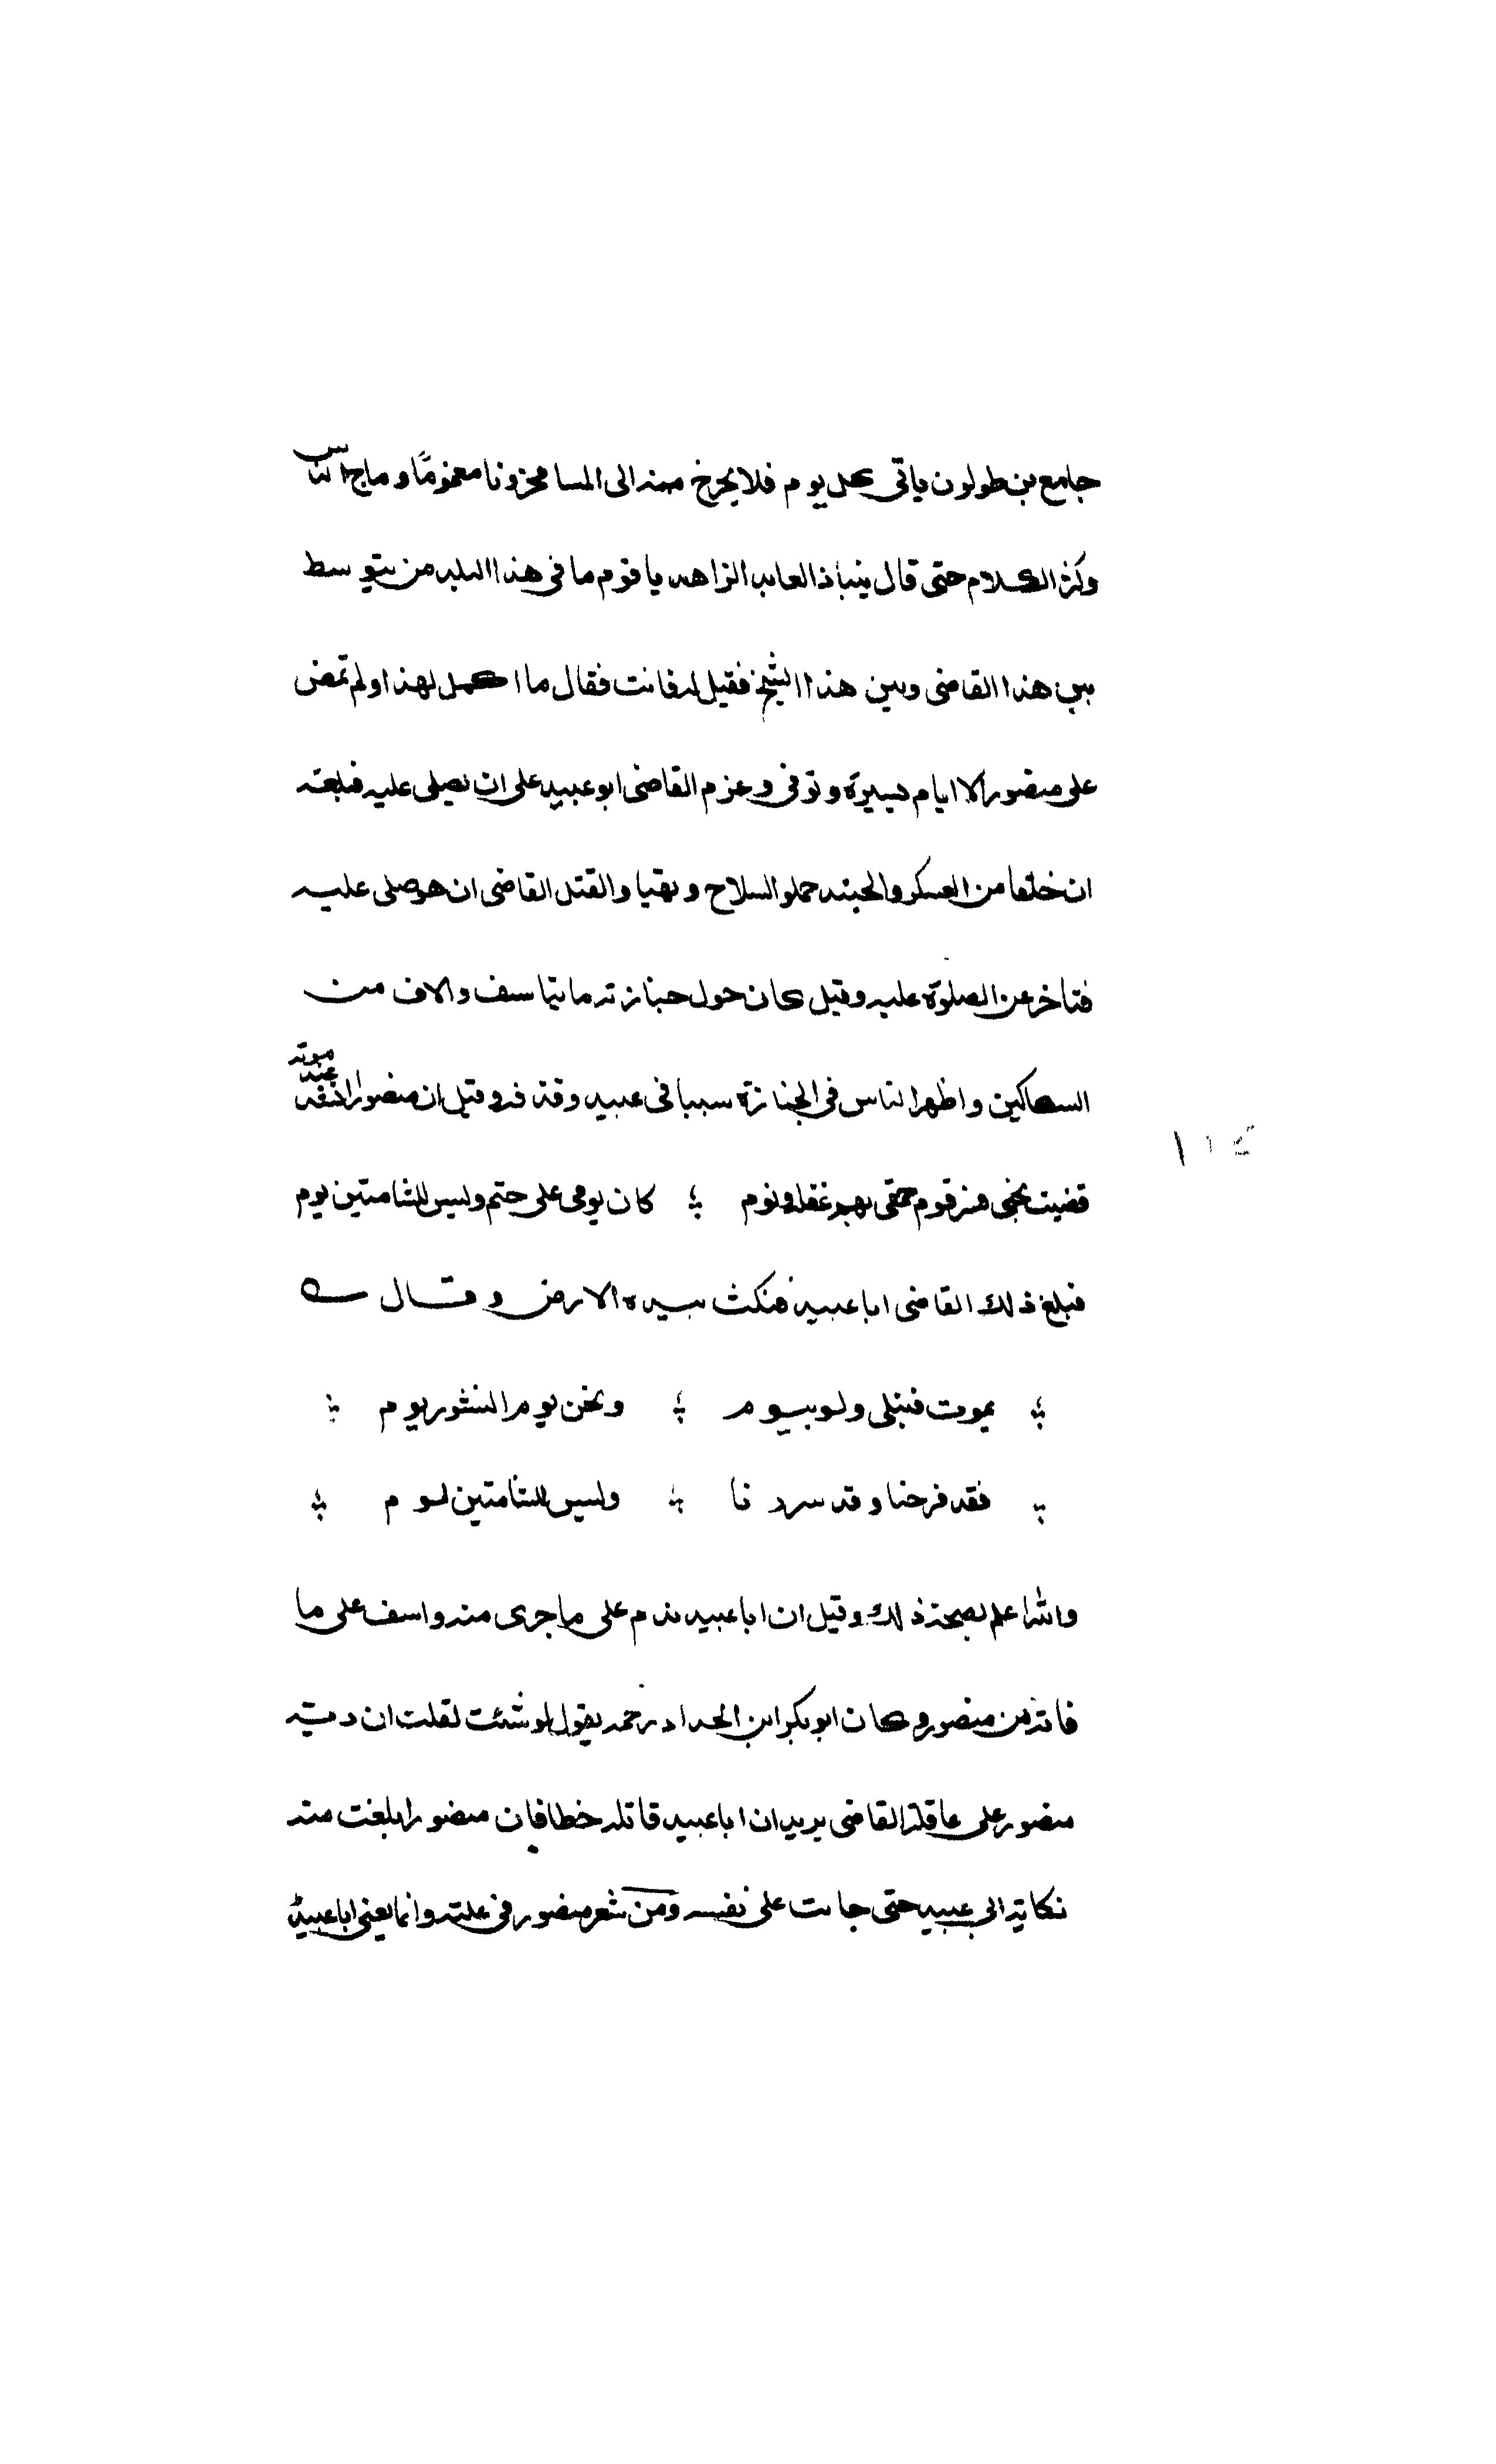 جامع بن طولون ياتى كل يوم فلا يخرج منه الى المسا محزونا مغمومًا وماج الناس
وكثر الكلام حتى قال بنباذ العابد الزاهد يا قوم ما فى هذا البلد من يتوسط
بين هذا القاضى وبين هذا الشيخ فقيل له فانت فقال ما اكمل لهذا ولم تمض
على منصور الا ايام يسيرة وتوفى وعزم القاضى ابو عبيد على ان يصلى عليه فبلغه
ان خلقا من العسكر والجند حملو السلاح وتهيا والقتل القاضى ان هو صلى عليه
فتاخر عن الصلوة عليه وقيل كان حول جنازته مايتا سيف والاف من
السكاكين واظهر الناس فى الجنازة سببا فى عبيد وقذفه وقيل ان منصورا انشد عند موته
قضيت نحبى فسر قوم حمقى بهم غفلة ونوم ؛ كان يومى على حتم وليس للشامتين يوم
فبلغ ذلك القاضى ابا عبيد فنكث بيده الارض وقال
يموت قبلى ولو بيوم ؛ ونحن يوم النشور يوم
فقد فرحنا وقد سررنا ؛ وليس للشامتين لوم
والله اعلم بصحة ذلك وقيل ان ابا عبيد ندم على ما جرى منه واسف على ما
فاته من منصور وكان ابو بكر ابن الحداد رحمه يقول لو شئت لقلت ان دية
منصور على عاقلة القاضى يريد ان ابا عبيد قاتله خطا فان منصورا بلغت منه
نكاية ابى عبيد حتى جات على نفسه ومن شعر منصور فى علته وانما يعنى ابا عبيد